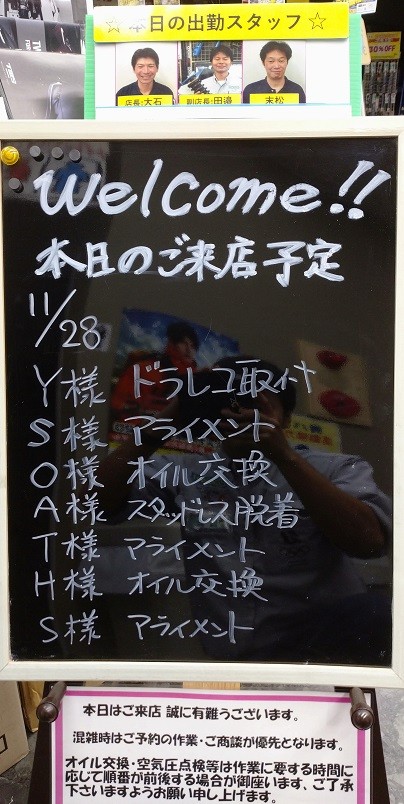 ☆ 本日の出勤スタッフ ☆
店長:大石
副店長:田邉
末松
Welcome!!
本日のご来店予定
11/28
Y様 ドラレコ取付
S様 アライメント
O様 オイル交換
A様 スタッドレス脱着
T様 アライメント
H様 オイル交換
S様 アライメント
本日はご来店 誠に有難うございます。
混雑時はご予約の作業・ご商談が優先となります。
オイル交換・空気圧点検等は作業に要する時間に
応じて順番が前後する場合が御座います、ご了承
下さいますようお願い申し上げます。